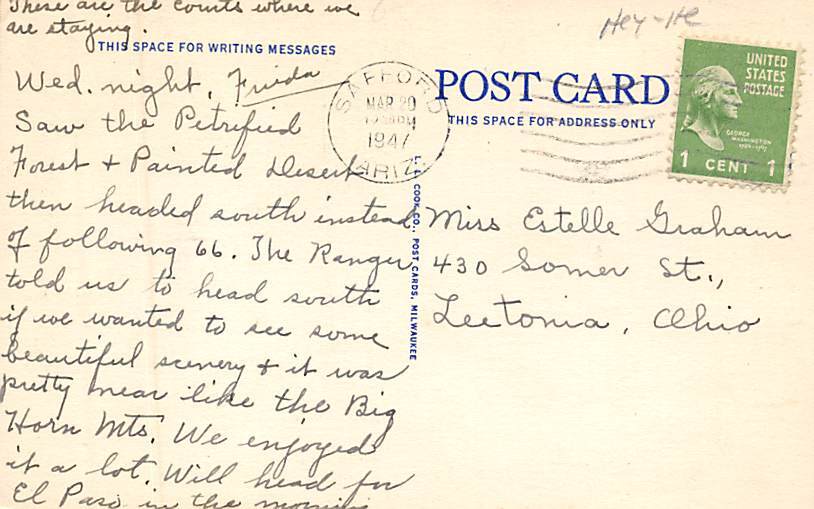 These are the courts where we
are staying.
THIS SPACE FOR WRITING MESSAGES
Wed. night, Frieda
Saw the Petrified
Forest + Painted Desert
then headed south instead
of following 66. The Ranger
told us to head south
if we wanted to see some
beautiful scenery + it was
pretty near like the Big
Horn Mts. We enjoyed
it a lot. Will head for
El Paso in the morning
L. L. COOK CO., POST CARDS, MILWAUKEE
Hey-He
SAFFORD
MAR 20
1947
ARIZ.
POST CARD
THIS SPACE FOR ADDRESS ONLY
UNITED
STATES
POSTAGE
GEORGE
WASHINGTON
1 CENT 1
Miss Estelle Graham
430 Somer St.,
Leetonia, Ohio